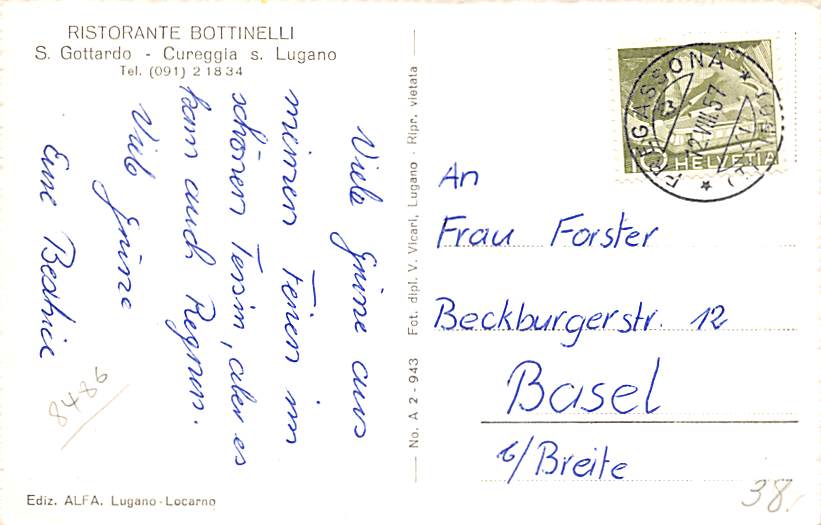 RISTORANTE BOTTINELLI
S. Gottardo - Cureggia s. Lugano
Tel. (091) 2 18 34
Viele Grüsse aus
meinen Ferien im
schönen Tessin, aber es
kam auch Regnen.
Viele Grüsse
Eure Beatrice
8486
Ediz. ALFA. Lugano-Locarno
No. A 2 - 943 Fot. dipl. V. Vicari, Lugano - Ripr. vietata
FREGASSONA
12.VIII.57
HELVETIA
An
Frau Forster
Beckburgerstr. 12
Basel
b/Breite
38.